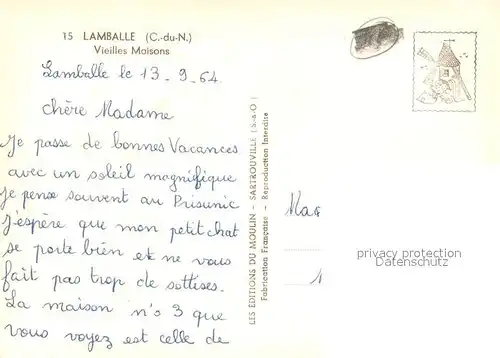 15 LAMBALLE (C.-du-N.)
Vieilles Maisons
Lamballe le 13_9_64.
chère Madame
Je passe de bonnes Vacances
avec un soleil magnifique
Je pense souvent au Prisunic
J'espère que mon petit chat
se porte bien et ne vous
fait pas trop de sottises.
La maison n°3 que
vous voyez est celle de
LES EDITIONS DU MOULIN - SARTROUVILLE (S.-&-O.)
Fabrication Française - Reproduction Interdite
privacy protection
Datenschutz